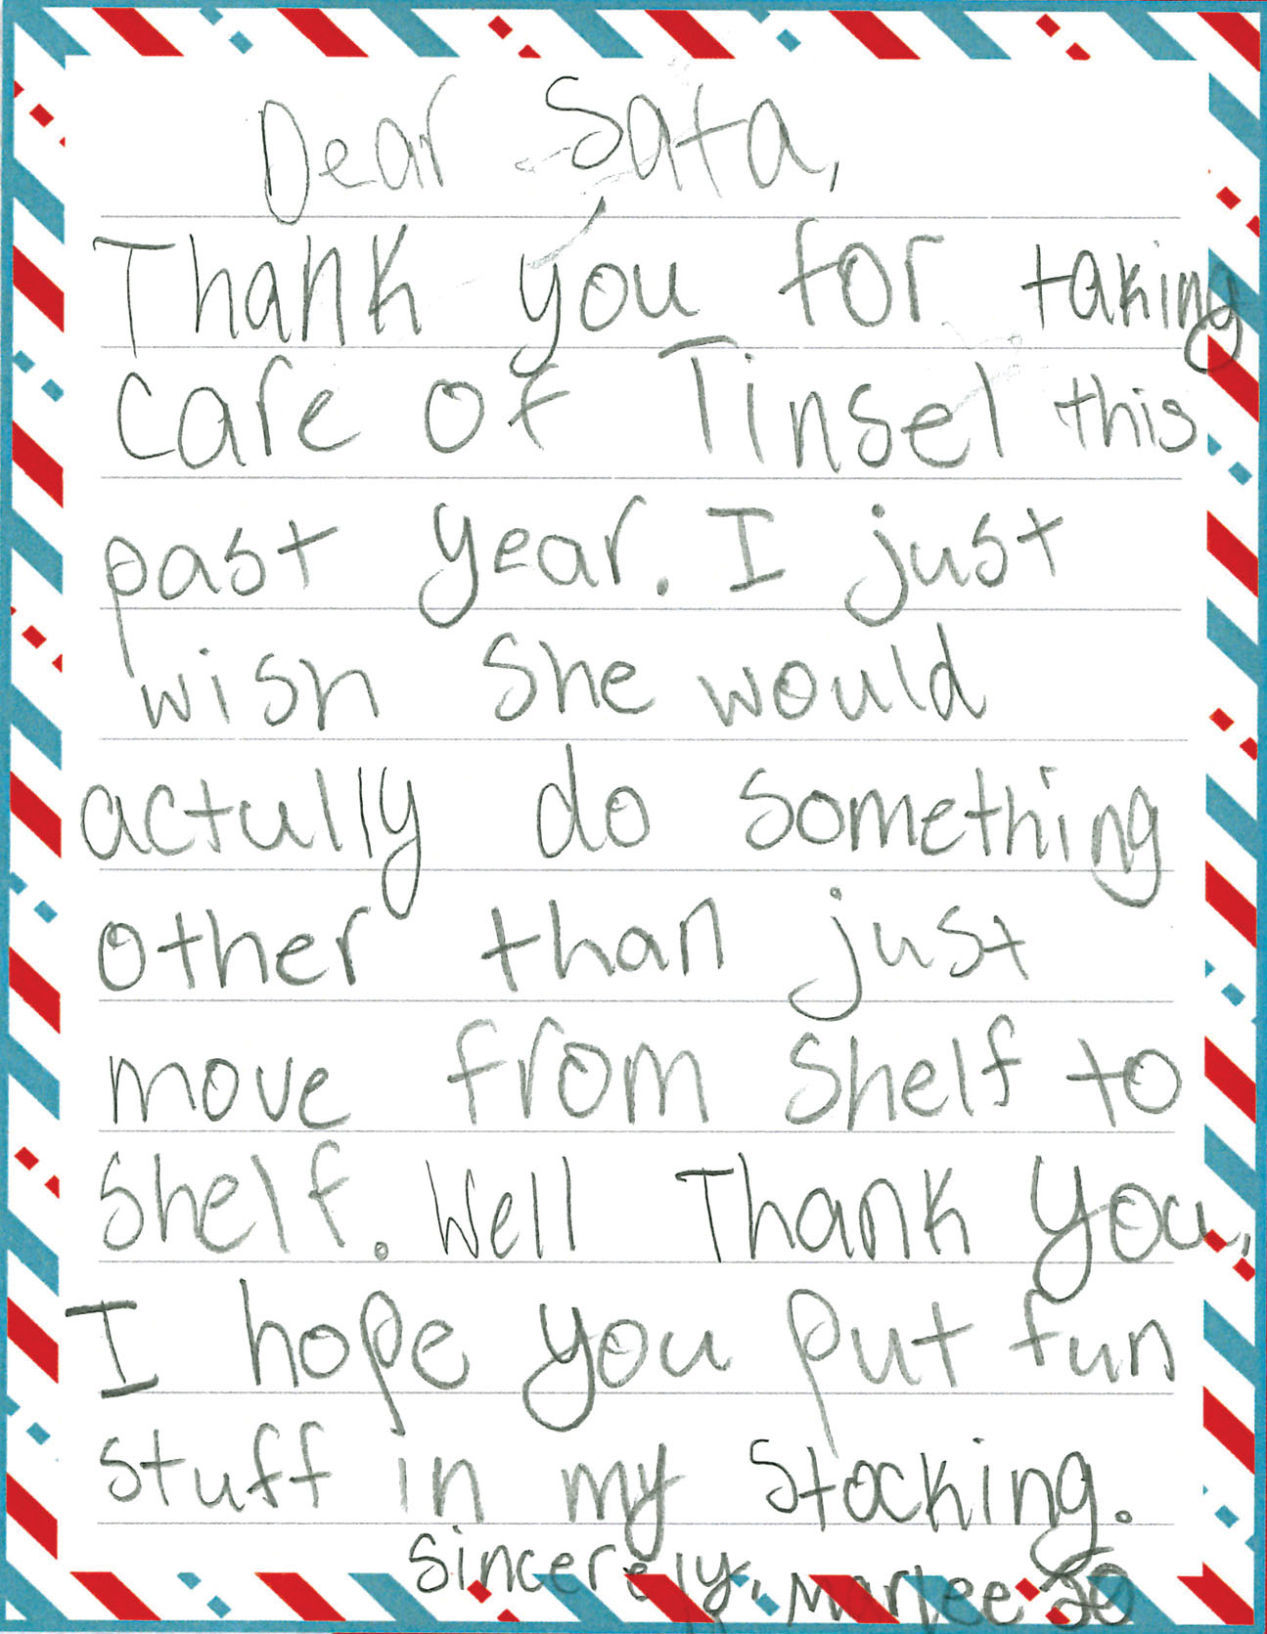 Dear Sata,
Thank you for taking
care of Tinsel this
past year. I just
wish she would
actully do something
other than just
move from shelf to
shelf. Well Thank you,
I hope you put fun
stuff in my stocking.
Sincerely, Marlee